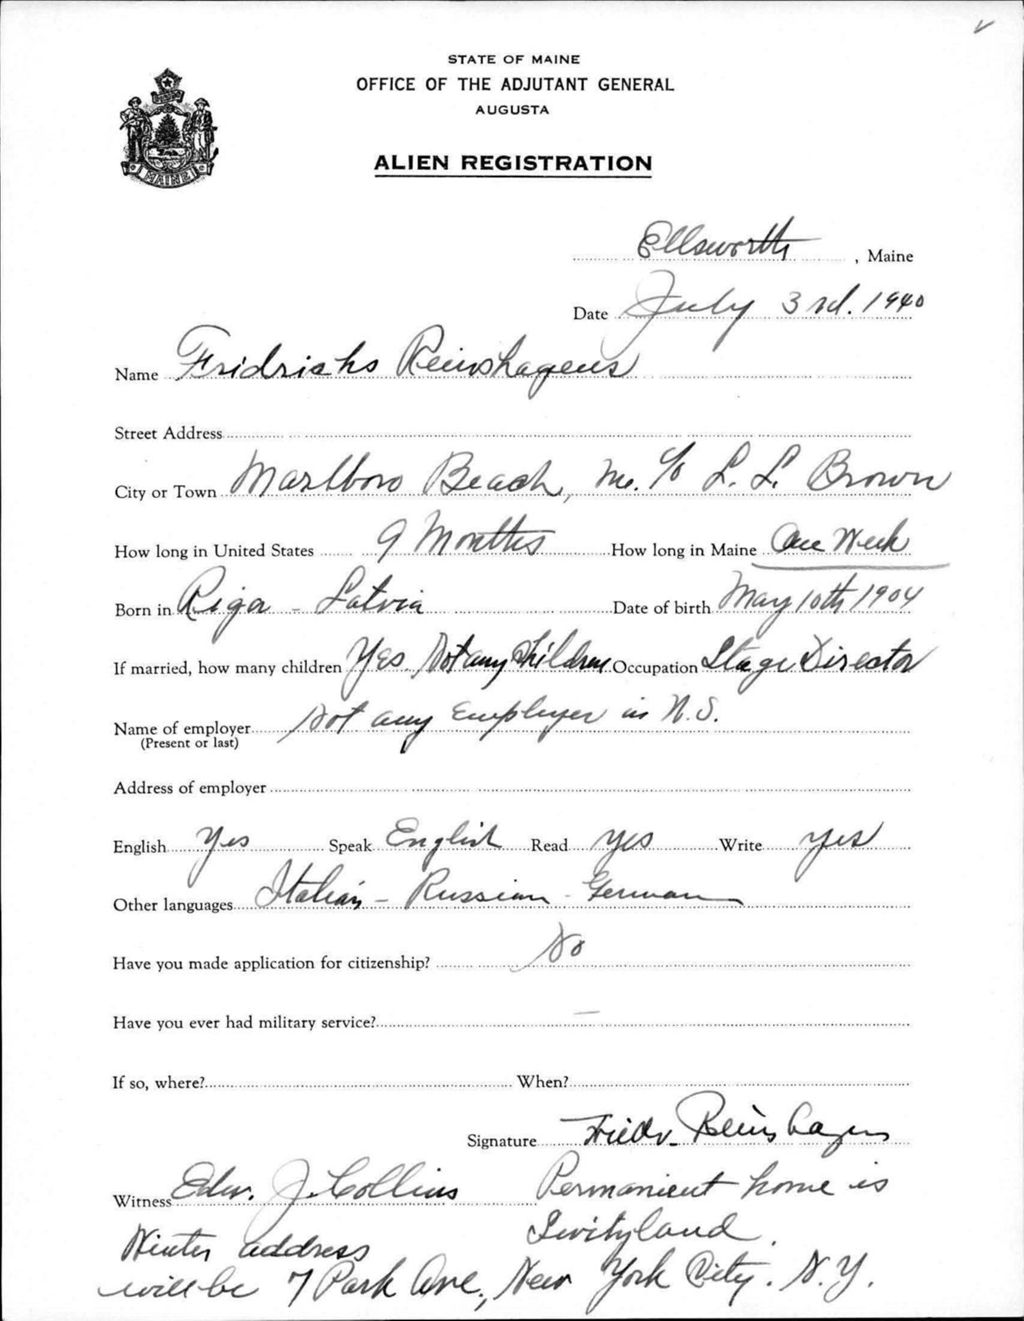 STATE OF MAINE
OFFICE OF THE ADJUTANT GENERAL
AUGUSTA
MAINE
ALIEN REGISTRATION
Ellsworth, Maine
Date July 3rd. 1940
Name Fridrichs Reinshagens
Street Address
City or Town Marlboro Beach, Me. c/o L. L. Brown
How long in United States 9 Months How long in Maine One Week
Born in Riga - Latvia Date of birth May 10th 1904
If married, how many children Yes Not any Children Occupation Stage Director
Name of employer Not any Employer in N.S.
(Present or last)
Address of employer
English Yes Speak English Read yes Write yes
Other languages Italian - Russian - German
Have you made application for citizenship? No
Have you ever had military service? —
If so, where? When?
Signature Friedr. Reinshagen
Witness Edw. J. Collins Permanent home is
Switzyland.
Winter address
will be 7 Park Ave., New York City. N.Y.